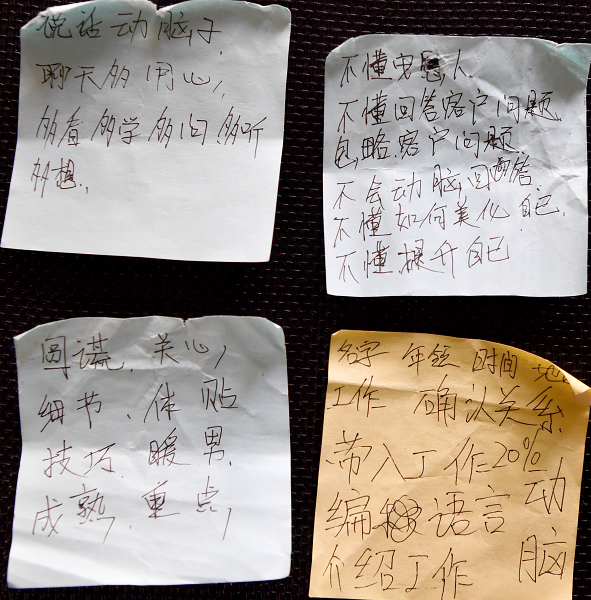 说话动脑子,
聊天多用心,
多看多学多问多听
多想,
不懂 人
不懂回答客户问题
忽略客户问题.
不会动脑回答.
不懂如何美化自己.
不懂提升自己
圆谎,关心,
细节、体贴
技巧.暖男.
成熟,重点,
名字 年纪 时间 地
工作 确认关系
带入工作20%
编 语言 动
介绍工作 脑